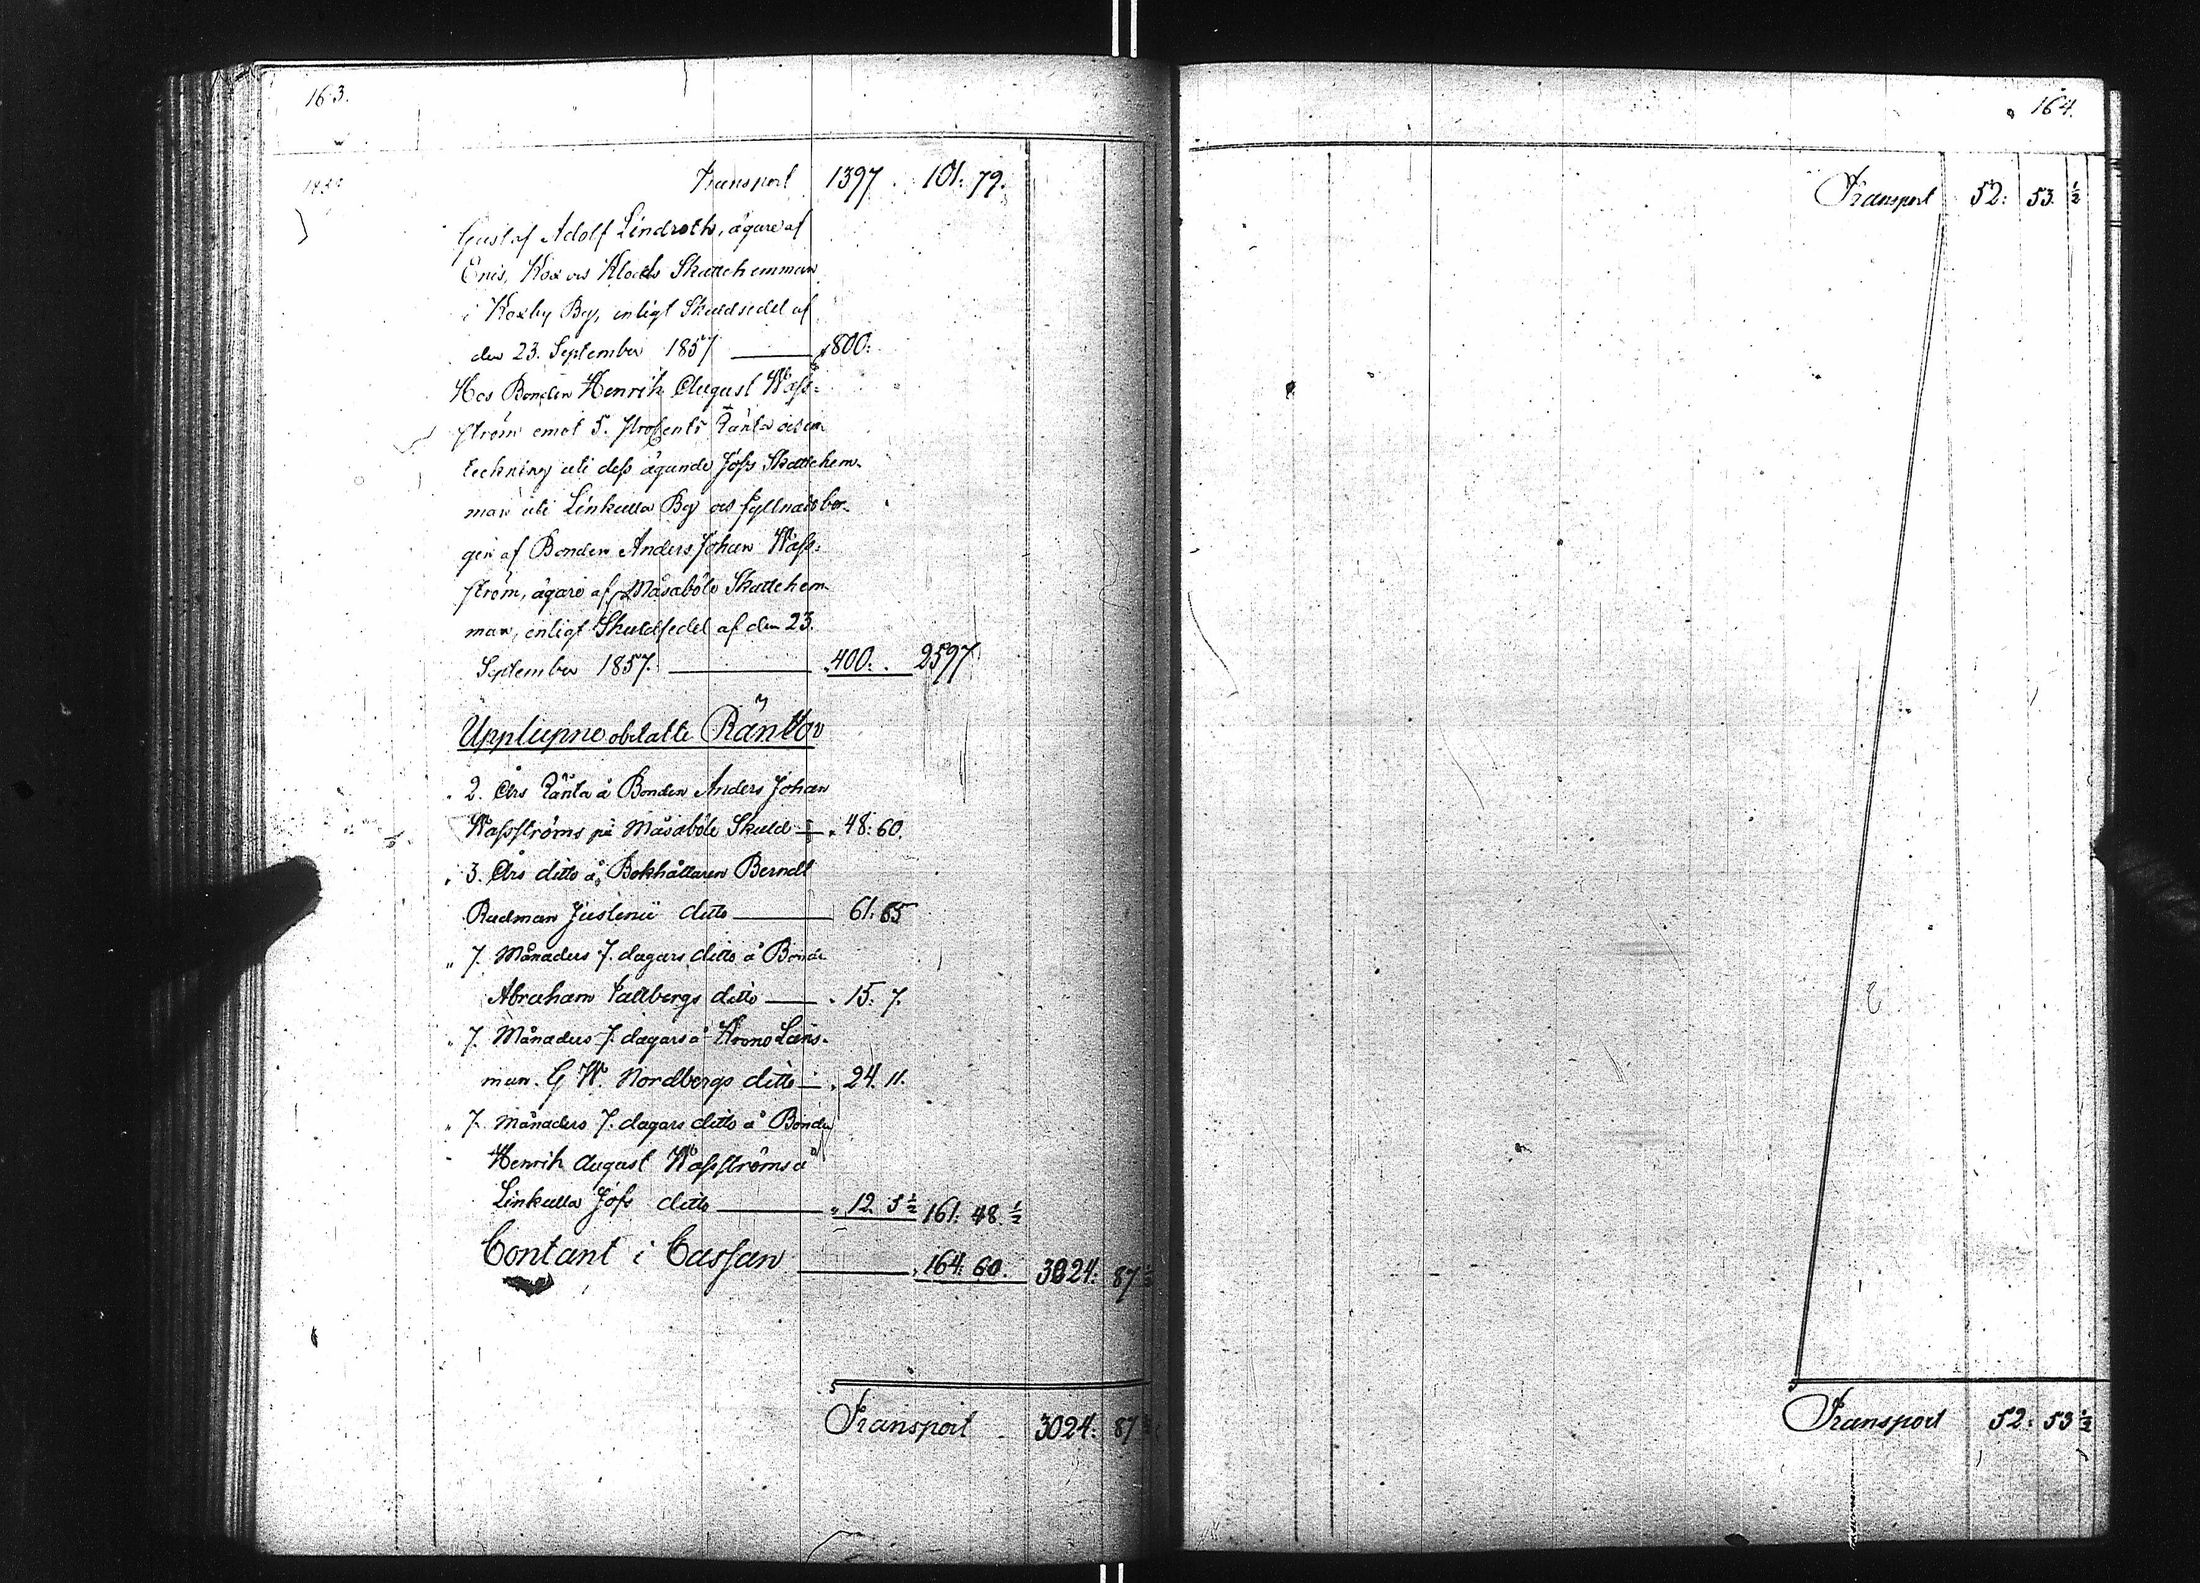 163.
Transport 1397 . 101: 79.
Gustaf Adolf Lindroths, ägare af
Eris, Kox och Klocks Skattehemman
i Koxby By, enligt Skuldsedel af
den 23. September 1857 — „ 800:
Hos Bonden Henrik August Wass-
ström emot 5. Procents Ränta och in-
teckning uti dess ägande Jofs Skattehem-
man uti Linkulla By och fyllnadsbor-
gen af Bonden Anders Johan Wass-
ström, ägare af Måsaböle Skattehem-
man, enligt Skuldsedel af den 23.
September 1857. — „ 400: . 2597
Upplupne obetalte Räntor
„ 2. Års Ränta å Bonden Anders Johan
Wassströms på Måsaböle Skuld — „ 48: 60.
„ 3. Års ditto å Bokhållaren Berndt
Rudman Justenii ditto — 61: 65
„ 7. Månaders 7. dagars ditto å Bonde
Abraham Fallbergs ditto — „ 15: 7.
„ 7. Månaders 7. dagars å Krono Läns-
man G W. Nordbergs ditto — „ 24. 11.
„ 7. Månaders 7. dagars ditto å Bonde
Henrik August Wassströms å
Linkulla Jofs ditto — „ 12. 5 ½ 161: 48. ½
Contant i Cassan — „ 164: 60. 3024: 87 ½
Transport 3024: 87 ½
164.
Transport 52: 53. ½
Transport 52: 53 ½